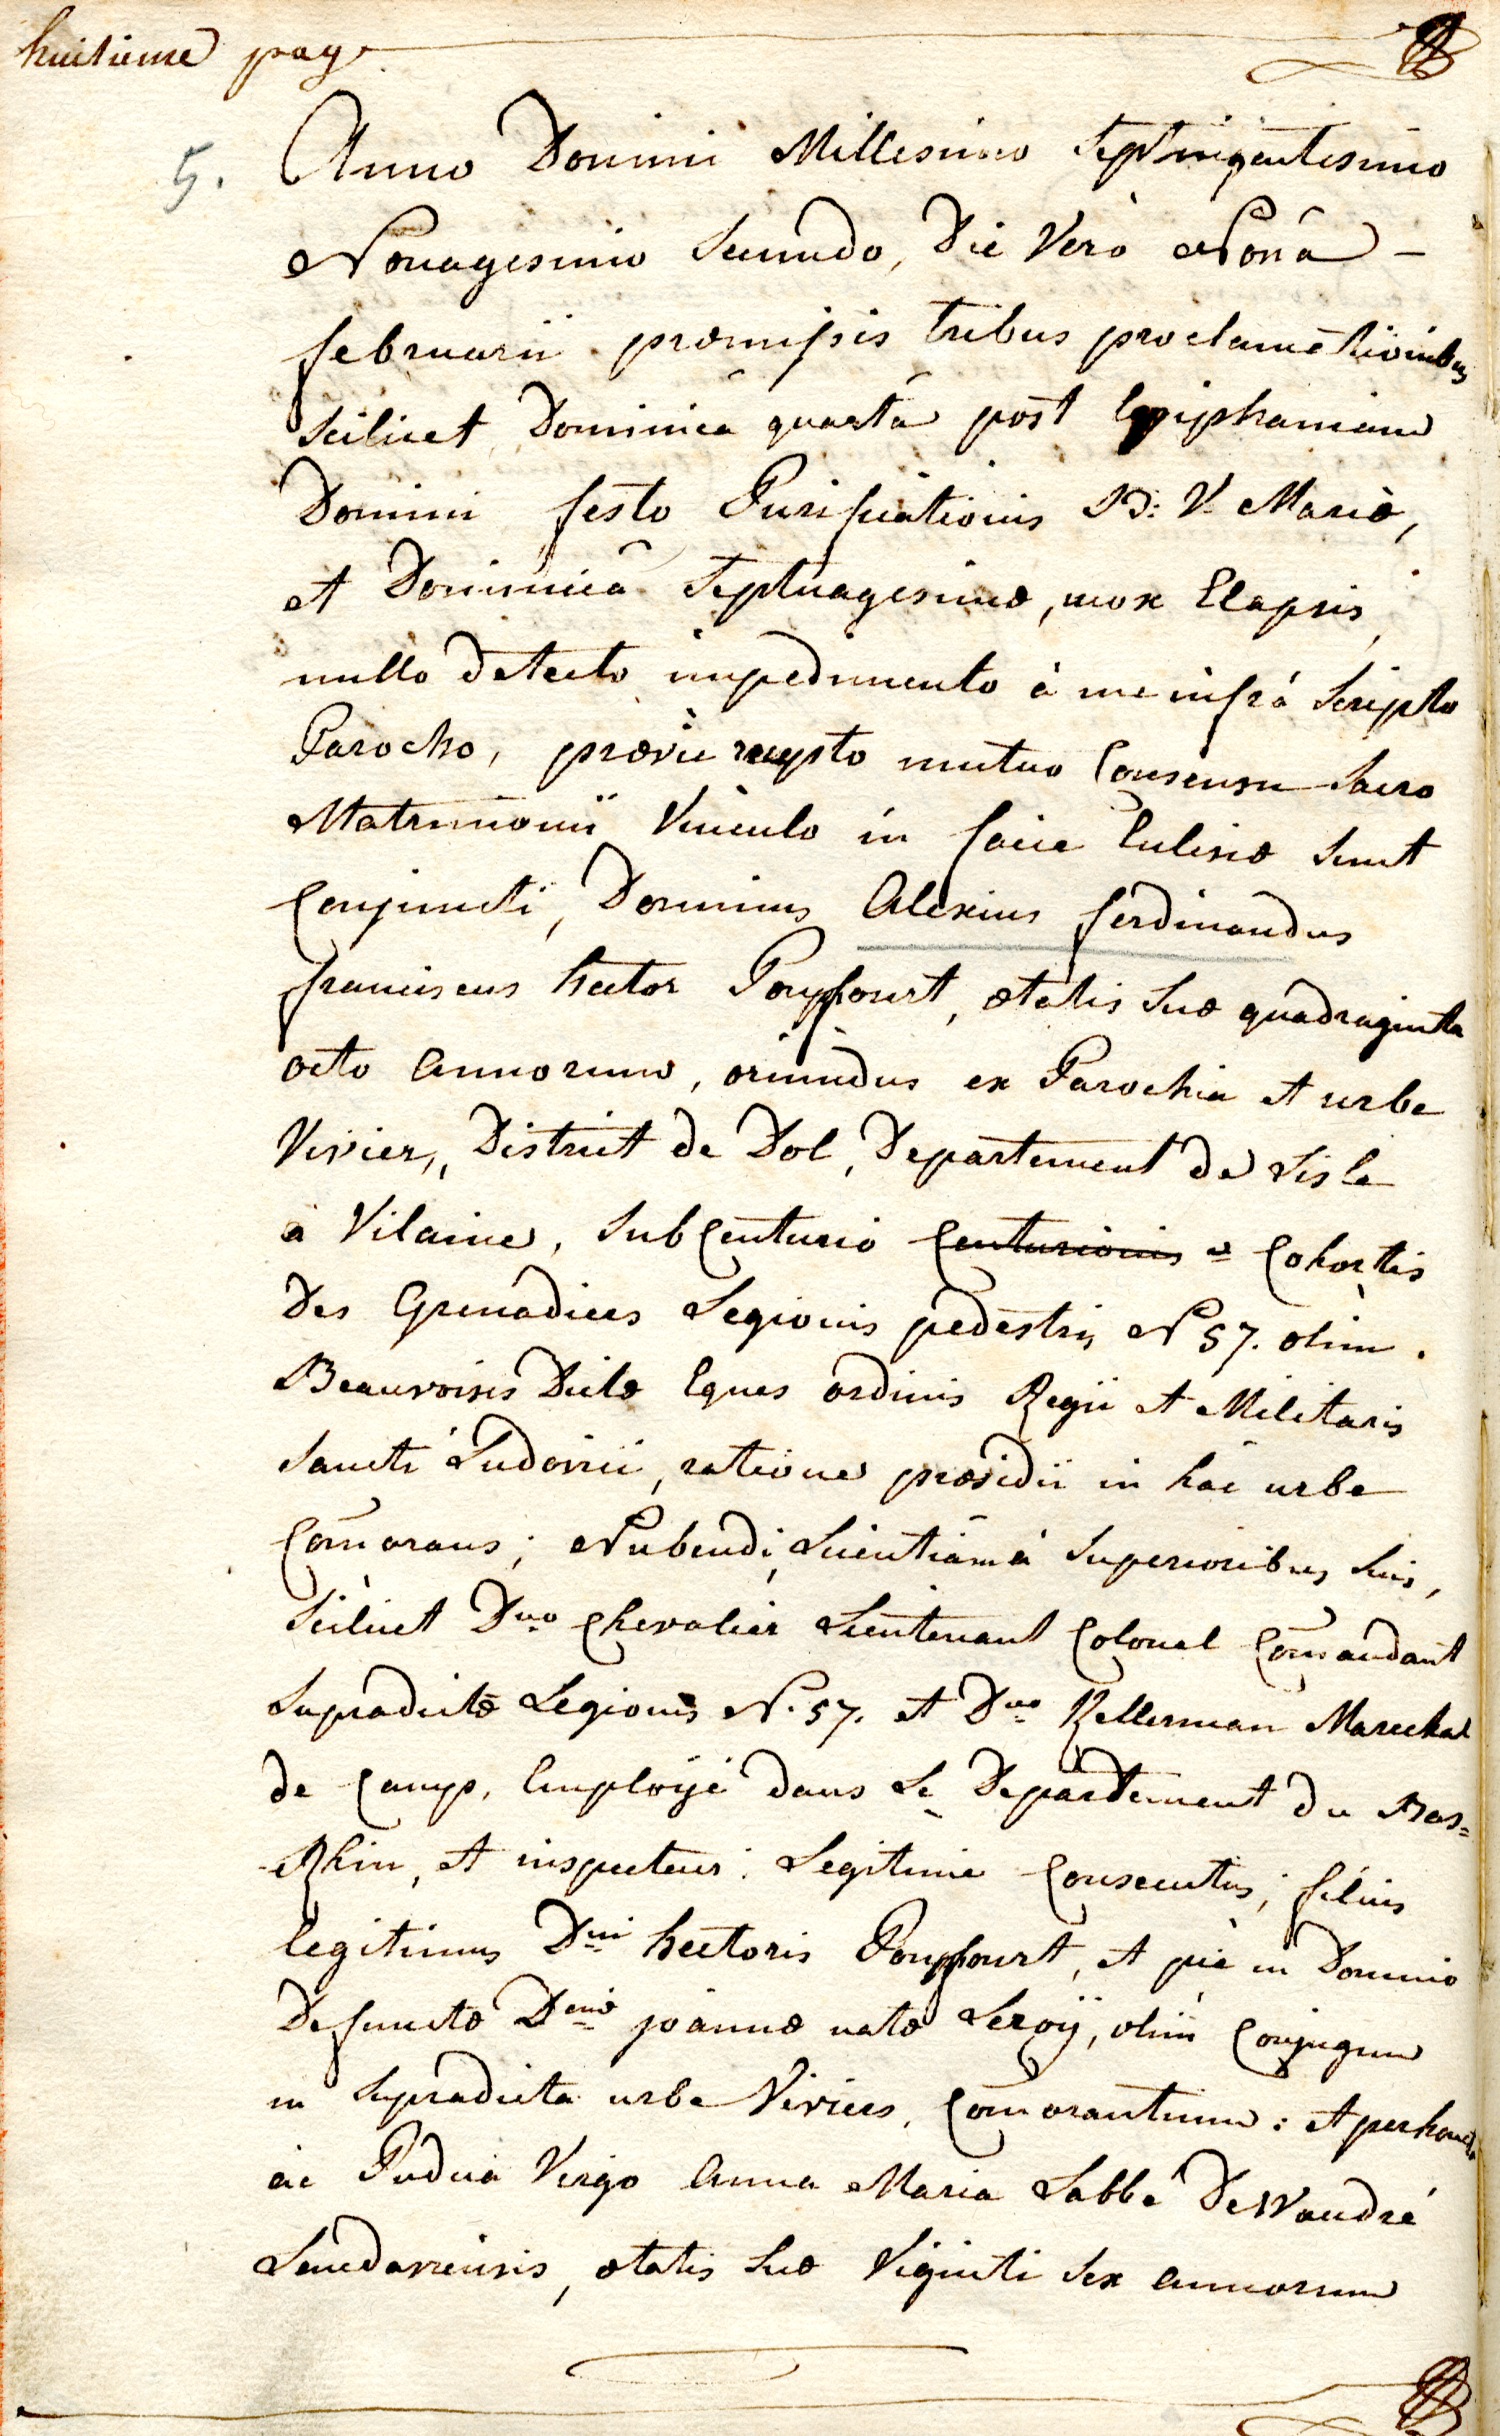 huitieme page
5. Anno Domini Millesimo Septingentesimo
Nonagesimo Secundo, Die Verò Nonâ -
februarii præmissis tribus proclamationibus
Scilicet Dominicâ quartâ post Epiphaniam
Domini festo Purificationis B: V. Mariæ,
et Dominicâ Septuagesimæ, mox Elapsis,
nullo detecto impedimento à me infrà Scripto
Parocho, prævie recepto mutuo Consensu Sacro
Matrimonii Vinculo in facie Eclesiæ Sunt
Conjuncti, Dominus Alexius ferdinandus
franciscus hector Pouffourt, ætatis Suæ quadraginta
octo annorum, oriundus ex Parochia et urbe
Vivier, District de Dol, Departement de Lisle
a Vilaine, SubCenturio Centurionis Cohortis
Des Grenadiers Legionis pedestris N 57. olim
Beauvoisis Dictæ Eques ordinis Regii et Militaris
Sancti Ludovici, ratione præsidii in hac urbe
Com̄orans; Nubendi Licentiam à Superioribus Suis,
Scilicet Dno Chevalier Lieutenant Colonel Com̄andant
Supradictæ Legionis N. 57. et Dno Kellerman Marechal
de Camp, Employé dans Le Departement du Bas=
-Rhin, et inspecteur. Legitime Consecutus; filius
legitimus Dni hectoris Pouffourt, et piè in Domino
Defunctæ Dnæ joannæ natæ Leroÿ, olim Conjugum
in Supradicta urbe Viviers, Com̄orantium: et perhonesta
ac Pudica Virgo Anna Maria Labbé DeWaudré
Landaviensis, ætatis Suæ Viginti Sex annorum